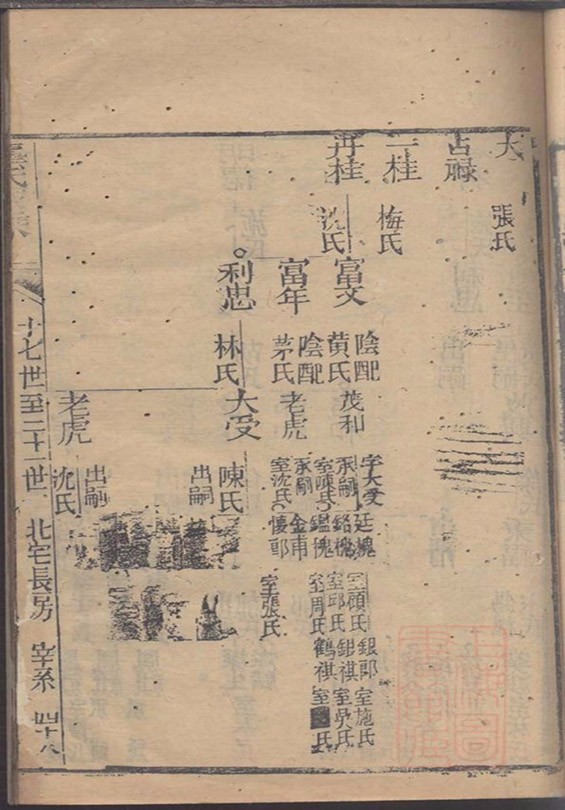 大 張氏
占祿
一桂 梅氏
丹桂 沈氏
富文 陰配黃氏 茂和 字大受承嗣室陳氏
廷槐 室顧氏 銀郎 室施氏
銘槐 室邱氏 鉗祺 室吳氏
鑑槐 室周氏 鶴祺 室 氏
富年 陰配茅氏 老虎 承嗣室沈氏
金甫 室張氏
懷郎
利忠 林氏
大受 出嗣 陳氏
老虎 出嗣 沈氏
十七世至二十一世 北宅長房 宰系 四十八